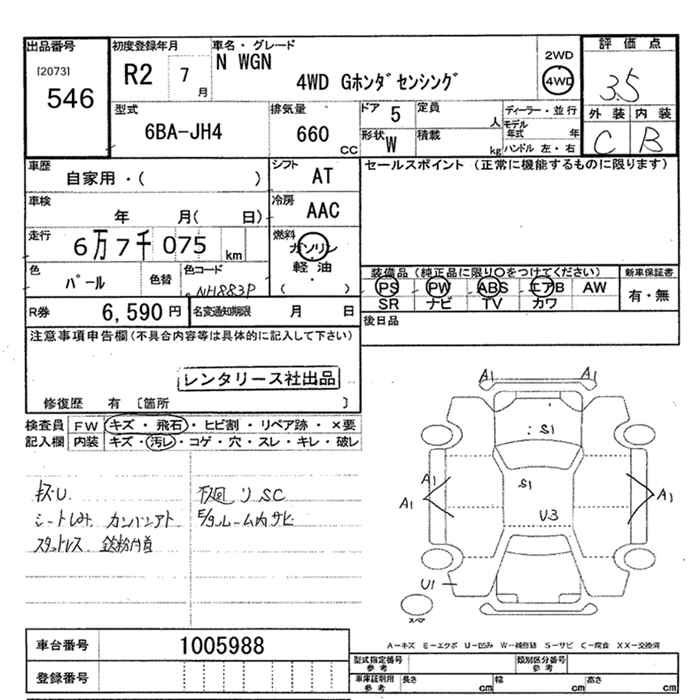 出品番号
[2073]
546
初度登録年月
R2 7 月
車名・グレード
N WGN
4WD Gホンダセンシング
2WD
4WD
評価点
3.5
外装 内装
C B
型式
6BA-JH4
排気量
660 CC
ドア 5
定員 人
形状 W
積載 kg
ディーラー・並行
モデル年式 年
ハンドル 左・右
車歴
自家用・( )
シフト AT
セールスポイント (正常に機能するものに限ります)
車検
年 月( 日)
冷房 AAC
走行
6万7千075 km
燃料
ガソリン
軽油
( ・ )
色
パール
色替
色コード
NH883P
装備品(純正品に限り○をつけてください)
PS PW ABS エアB AW
SR ナビ TV カワ
新車保証書
有・無
R券 6,590円
名変通知期限 月 日
後日品
注意事項申告欄(不具合内容等は具体的に記入して下さい)
レンタリース社出品
修復歴 有 [箇所 ]
検査員記入欄
FW キズ・飛石・ヒビ割・リペア跡・×要
内装 キズ・汚レ・コゲ・穴・スレ・キレ・破レ
シートしみ カンバンアト
スタットレス 鉄粉付着
下廻り SC
E/gルーム内サビ
A1 A1
S1
S1
A1 A1
A1 A1
U3
U1
スペア
A―キズ E―エクボ U―凹み W―補修跡 S―サビ C―腐食 XX―交換済
車台番号 1005988
登録番号
型式指定番号 参考
類別区分番号 参考
車庫証明用 参考
長さ cm 幅 cm 高さ cm